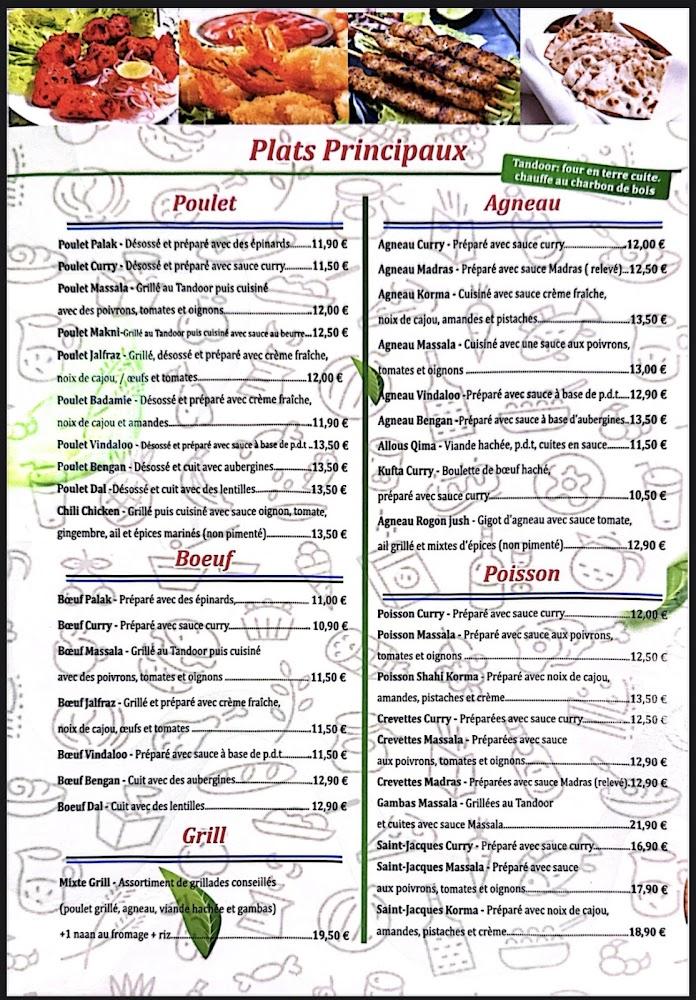 Plats Principaux
Tandoor: four en terre cuite.
chauffe au charbon de bois
Poulet
Poulet Palak - Désossé et préparé avec des épinards......11,90 €
Poulet Curry - Désossé et préparé avec sauce curry.........11,50 €
Poulet Massala - Grillé au Tandoor puis cuisiné
avec des poivrons, tomates et oignons..............................12,00 €
Poulet Makni-Grillé au Tandoor puis cuisiné avec sauce au beurre...12,50 €
Poulet Jalfraz - Grillé, désossé et préparé avec crème fraîche,
noix de cajou, / œufs et tomates.....................................12,00 €
Poulet Badamie - Désossé et préparé avec crème fraîche,
noix de cajou et amandes...............................................11,90 €
Poulet Vindaloo - Désossé et préparé avec sauce à base de p.d.t ..13,50 €
Poulet Bengan - Désossé et cuit avec aubergines............13,50 €
Poulet Dal -Désossé et cuit avec des lentilles...................13,50 €
Chili Chicken - Grillé puis cuisiné avec sauce oignon, tomate,
gingembre, ail et épices marinés (non pimenté)...............13,50 €
Boeuf
Bœuf Palak - Préparé avec des épinards,......................... 11,00 €
Bœuf Curry - Préparé avec sauce curry........................... 10,90 €
Bœuf Massala - Grillé au Tandoor puis cuisiné
avec des poivrons, tomates et oignons ............................ 11,50 €
Bœuf Jalfraz - Grillé et préparé avec crème fraîche,
noix de cajou, œufs et tomates .......................................11,50 €
Bœuf Vindaloo - Préparé avec sauce à base de p.d.t.........11,50 €
Bœuf Bengan - Cuit avec des aubergines......................... 12,90 €
Boeuf Dal - Cuit avec des lentilles................................... 12,90 €
Grill
Mixte Grill - Assortiment de grillades conseillés
(poulet grillé, agneau, viande hachée et gambas)
+1 naan au fromage + riz................................................19,50 €
Agneau
Agneau Curry - Préparé avec sauce curry....................12,00 €
Agneau Madras - Préparé avec sauce Madras ( relevé)...12,50 €
Agneau Korma - Cuisiné avec sauce crème fraîche,
noix de cajou, amandes et pistaches.............................13,50 €
Agneau Massala - Cuisiné avec une sauce aux poivrons,
tomates et oignons .......................................................13,00 €
Agneau Vindaloo -Préparé avec sauce à base de p.d.t....12,90 €
Agneau Bengan -Préparé avec sauce à base d'aubergines..13,50 €
Allous Qima - Viande hachée, p.d.t, cuites en sauce......11,50 €
Kufta Curry - Boulette de bœuf haché,
préparé avec sauce curry..............................................10,50 €
Agneau Rogon Jush - Gigot d'agneau avec sauce tomate,
ail grillé et mixtes d'épices (non pimenté)..................... 12,90 €
Poisson
Poisson Curry - Préparé avec sauce curry..................... 12,00 €
Poisson Massala - Préparé avec sauce aux poivrons,
tomates et oignons .......................................................12,50 €
Poisson Shahi Korma - Préparé avec noix de cajou,
amandes, pistaches et crème.........................................13,50 €
Crevettes Curry - Préparées avec sauce curry...............12,50 €
Crevettes Massala - Préparées avec sauce
aux poivrons, tomates et oignons..................................12,90 €
Crevettes Madras - Préparées avec sauce Madras (relevé).12,90 €
Gambas Massala - Grillées au Tandoor
et cuites avec sauce Massala.........................................21,90 €
Saint-Jacques Curry - Préparé avec sauce curry........... 16,90 €
Saint-Jacques Massala - Préparé avec sauce
aux poivrons, tomates et oignons..................................17,90 €
Saint-Jacques Korma - Préparé avec noix de cajou,
amandes, pistaches et crème........................................ 18,90 €